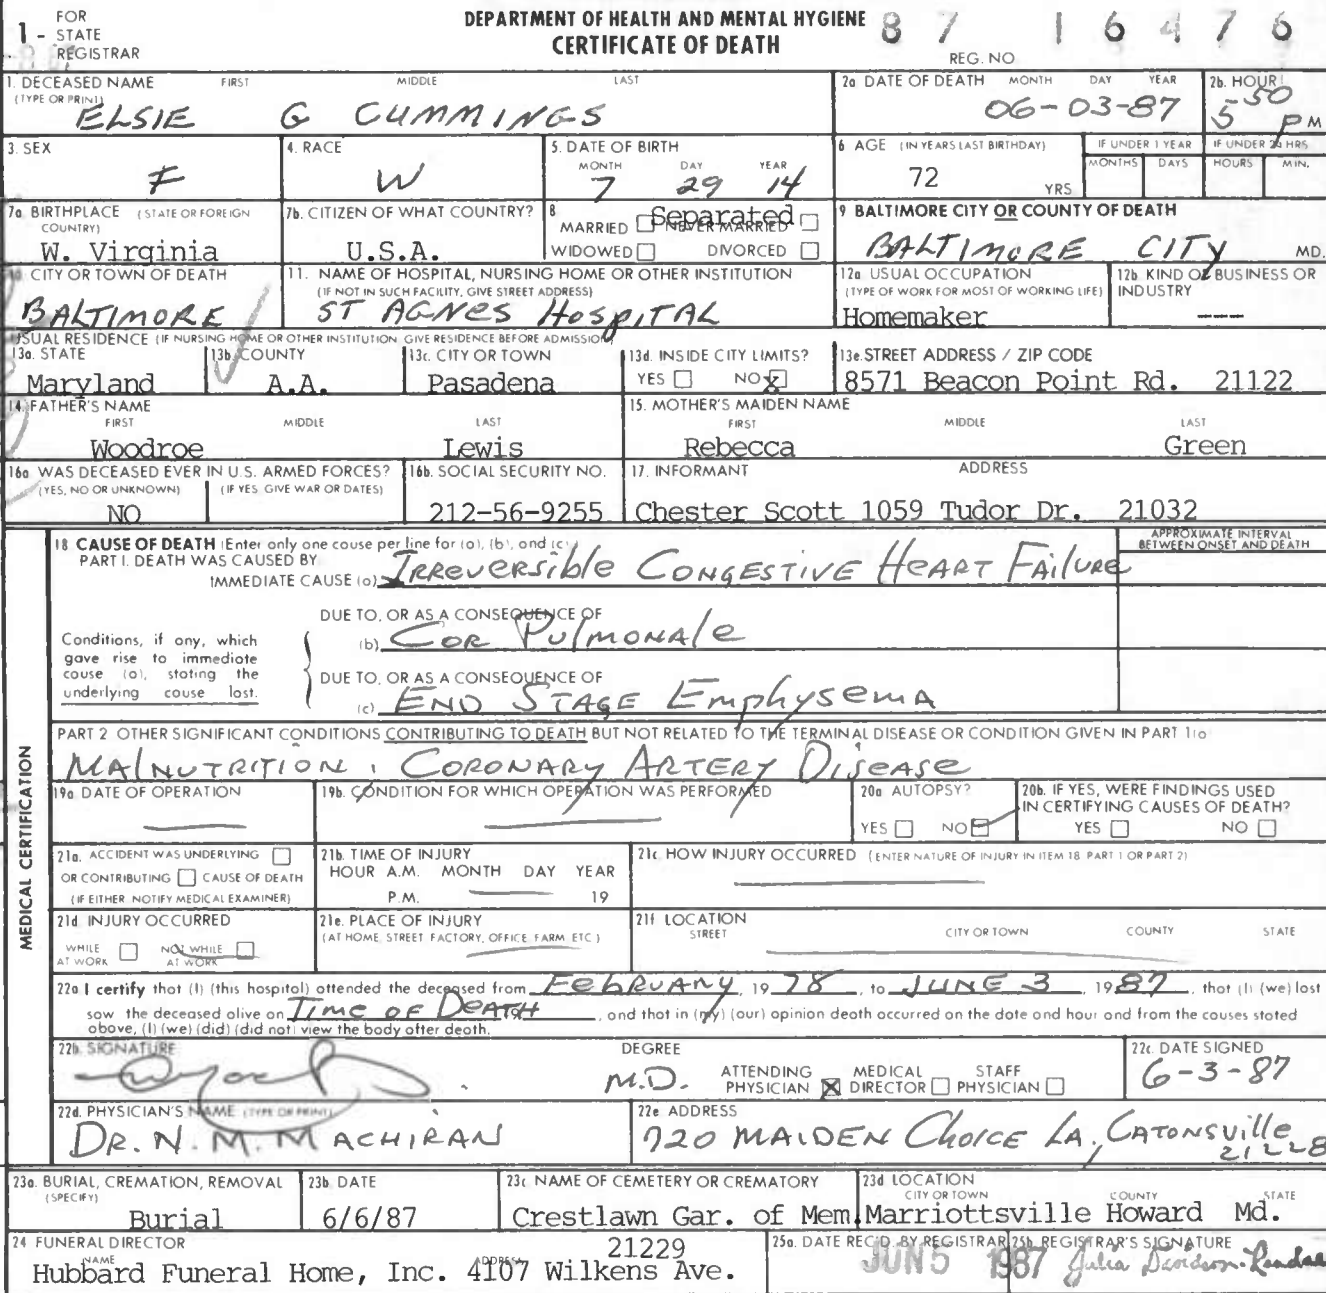 FOR
1 - STATE
REGISTRAR
DEPARTMENT OF HEALTH AND MENTAL HYGIENE
CERTIFICATE OF DEATH
87 16476
REG. NO
1. DECEASED NAME FIRST MIDDLE LAST
(TYPE OR PRINT)
ELSIE G CUMMINGS
2a DATE OF DEATH MONTH DAY YEAR
06-03-87
2b. HOUR
5 50 PM
3. SEX
F
4. RACE
W
5. DATE OF BIRTH
MONTH DAY YEAR
7 29 14
6 AGE (IN YEARS LAST BIRTHDAY)
72 YRS
IF UNDER 1 YEAR
MONTHS DAYS
IF UNDER 24 HRS
HOURS MIN.
7a BIRTHPLACE (STATE OR FOREIGN
COUNTRY)
W. Virginia
7b. CITIZEN OF WHAT COUNTRY?
U.S.A.
8
Separated
MARRIED NEVER MARRIED
WIDOWED DIVORCED
9 BALTIMORE CITY OR COUNTY OF DEATH
BALTIMORE CITY MD.
10 CITY OR TOWN OF DEATH
BALTIMORE
11. NAME OF HOSPITAL, NURSING HOME OR OTHER INSTITUTION
(IF NOT IN SUCH FACILITY, GIVE STREET ADDRESS)
ST AGNES HOSPITAL
12a USUAL OCCUPATION
(TYPE OF WORK FOR MOST OF WORKING LIFE)
Homemaker
12b KIND OF BUSINESS OR
INDUSTRY
---
USUAL RESIDENCE (IF NURSING HOME OR OTHER INSTITUTION GIVE RESIDENCE BEFORE ADMISSION)
13a. STATE
Maryland
13b COUNTY
A.A.
13c. CITY OR TOWN
Pasadena
13d. INSIDE CITY LIMITS?
YES NO X
13e. STREET ADDRESS / ZIP CODE
8571 Beacon Point Rd. 21122
14. FATHER'S NAME
FIRST MIDDLE LAST
Woodroe Lewis
15. MOTHER'S MAIDEN NAME
FIRST MIDDLE LAST
Rebecca Green
16a WAS DECEASED EVER IN U.S. ARMED FORCES?
(YES, NO OR UNKNOWN) (IF YES, GIVE WAR OR DATES)
NO
16b. SOCIAL SECURITY NO.
212-56-9255
17. INFORMANT ADDRESS
Chester Scott 1059 Tudor Dr. 21032
MEDICAL CERTIFICATION
18 CAUSE OF DEATH (Enter only one cause per line for (a), (b), and (c))
APPROXIMATE INTERVAL
BETWEEN ONSET AND DEATH
PART I. DEATH WAS CAUSED BY
IMMEDIATE CAUSE (a) IRREVERSIBLE CONGESTIVE HEART FAILURE
DUE TO, OR AS A CONSEQUENCE OF
Conditions, if any, which
gave rise to immediate
cause (a), stating the
underlying cause last.
(b) COR PULMONALE
DUE TO, OR AS A CONSEQUENCE OF
(c) END STAGE EMPHYSEMA
PART 2 OTHER SIGNIFICANT CONDITIONS CONTRIBUTING TO DEATH BUT NOT RELATED TO THE TERMINAL DISEASE OR CONDITION GIVEN IN PART 1(a
MALNUTRITION; CORONARY ARTERY DISEASE
19a DATE OF OPERATION
19b. CONDITION FOR WHICH OPERATION WAS PERFORMED
20a AUTOPSY?
YES NO
20b. IF YES, WERE FINDINGS USED
IN CERTIFYING CAUSES OF DEATH?
YES NO
21a. ACCIDENT WAS UNDERLYING
OR CONTRIBUTING CAUSE OF DEATH
(IF EITHER NOTIFY MEDICAL EXAMINER)
21b. TIME OF INJURY
HOUR A.M. MONTH DAY YEAR
P.M. 19
21c. HOW INJURY OCCURRED (ENTER NATURE OF INJURY IN ITEM 18 PART 1 OR PART 2)
21d INJURY OCCURRED
WHILE AT WORK NOT WHILE AT WORK
21e. PLACE OF INJURY
(AT HOME, STREET, FACTORY, OFFICE, FARM, ETC.)
21f LOCATION
STREET CITY OR TOWN COUNTY STATE
22a I certify that (I) (this hospital) attended the deceased from FEBRUARY, 1978, to JUNE 3, 1987, that (I) (we) last
saw the deceased alive on TIME OF DEATH, and that in (my) (our) opinion death occurred on the date and hour and from the causes stated
above, (I) (we) (did) (did not) view the body after death.
22b. SIGNATURE
DEGREE
M.D.
ATTENDING PHYSICIAN X MEDICAL DIRECTOR STAFF PHYSICIAN
22c. DATE SIGNED
6-3-87
22d. PHYSICIAN'S NAME (TYPE OR PRINT)
DR. N. M. MACHIRAN
22e ADDRESS
720 MAIDEN CHOICE LA, CATONSVILLE
21228
23a. BURIAL, CREMATION, REMOVAL
(SPECIFY)
Burial
23b. DATE
6/6/87
23c NAME OF CEMETERY OR CREMATORY
Crestlawn Gar. of Mem.
23d LOCATION
CITY OR TOWN COUNTY STATE
Marriottsville Howard Md.
24 FUNERAL DIRECTOR
NAME ADDRESS
21229
Hubbard Funeral Home, Inc. 4107 Wilkens Ave.
25a. DATE REC'D. BY REGISTRAR
JUN 5 1987
25b. REGISTRAR'S SIGNATURE
Julia Davidson-Randall